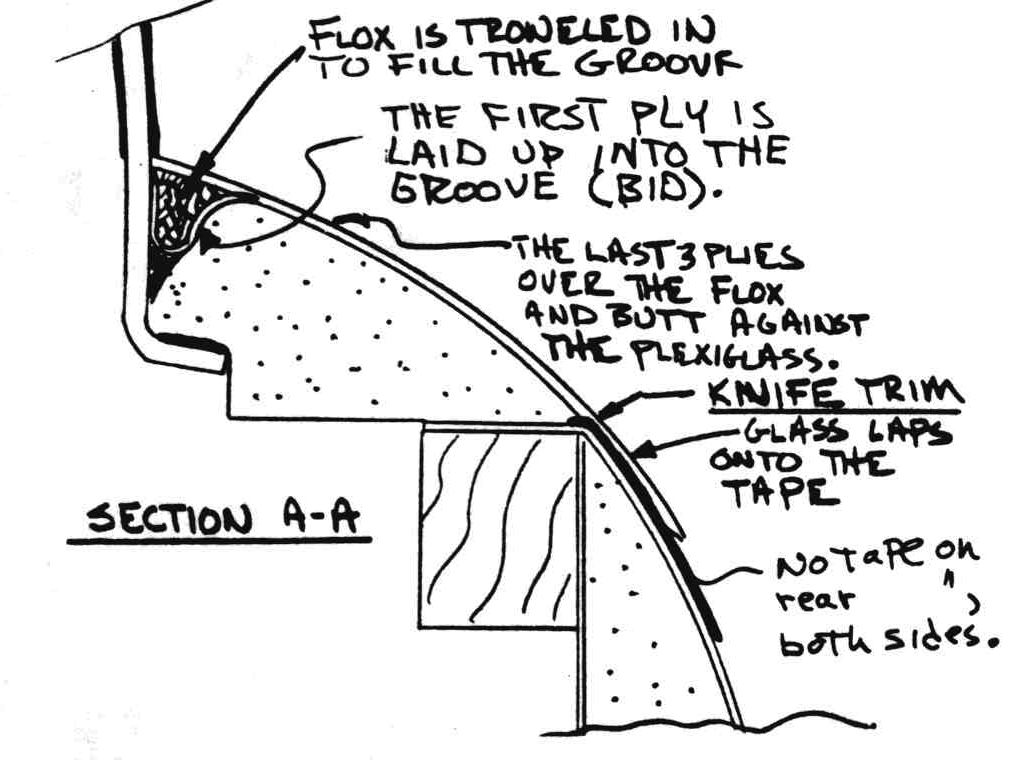 FLOX IS TROWELED IN
TO FILL THE GROOVE
THE FIRST PLY IS
LAID UP INTO THE
GROOVE (BID).
THE LAST 3 PLIES
OVER THE FLOX
AND BUTT AGAINST
THE PLEXIGLASS.
KNIFE TRIM
GLASS LAPS
ONTO THE
TAPE
SECTION A-A
No Tape on
rear " )
both sides.